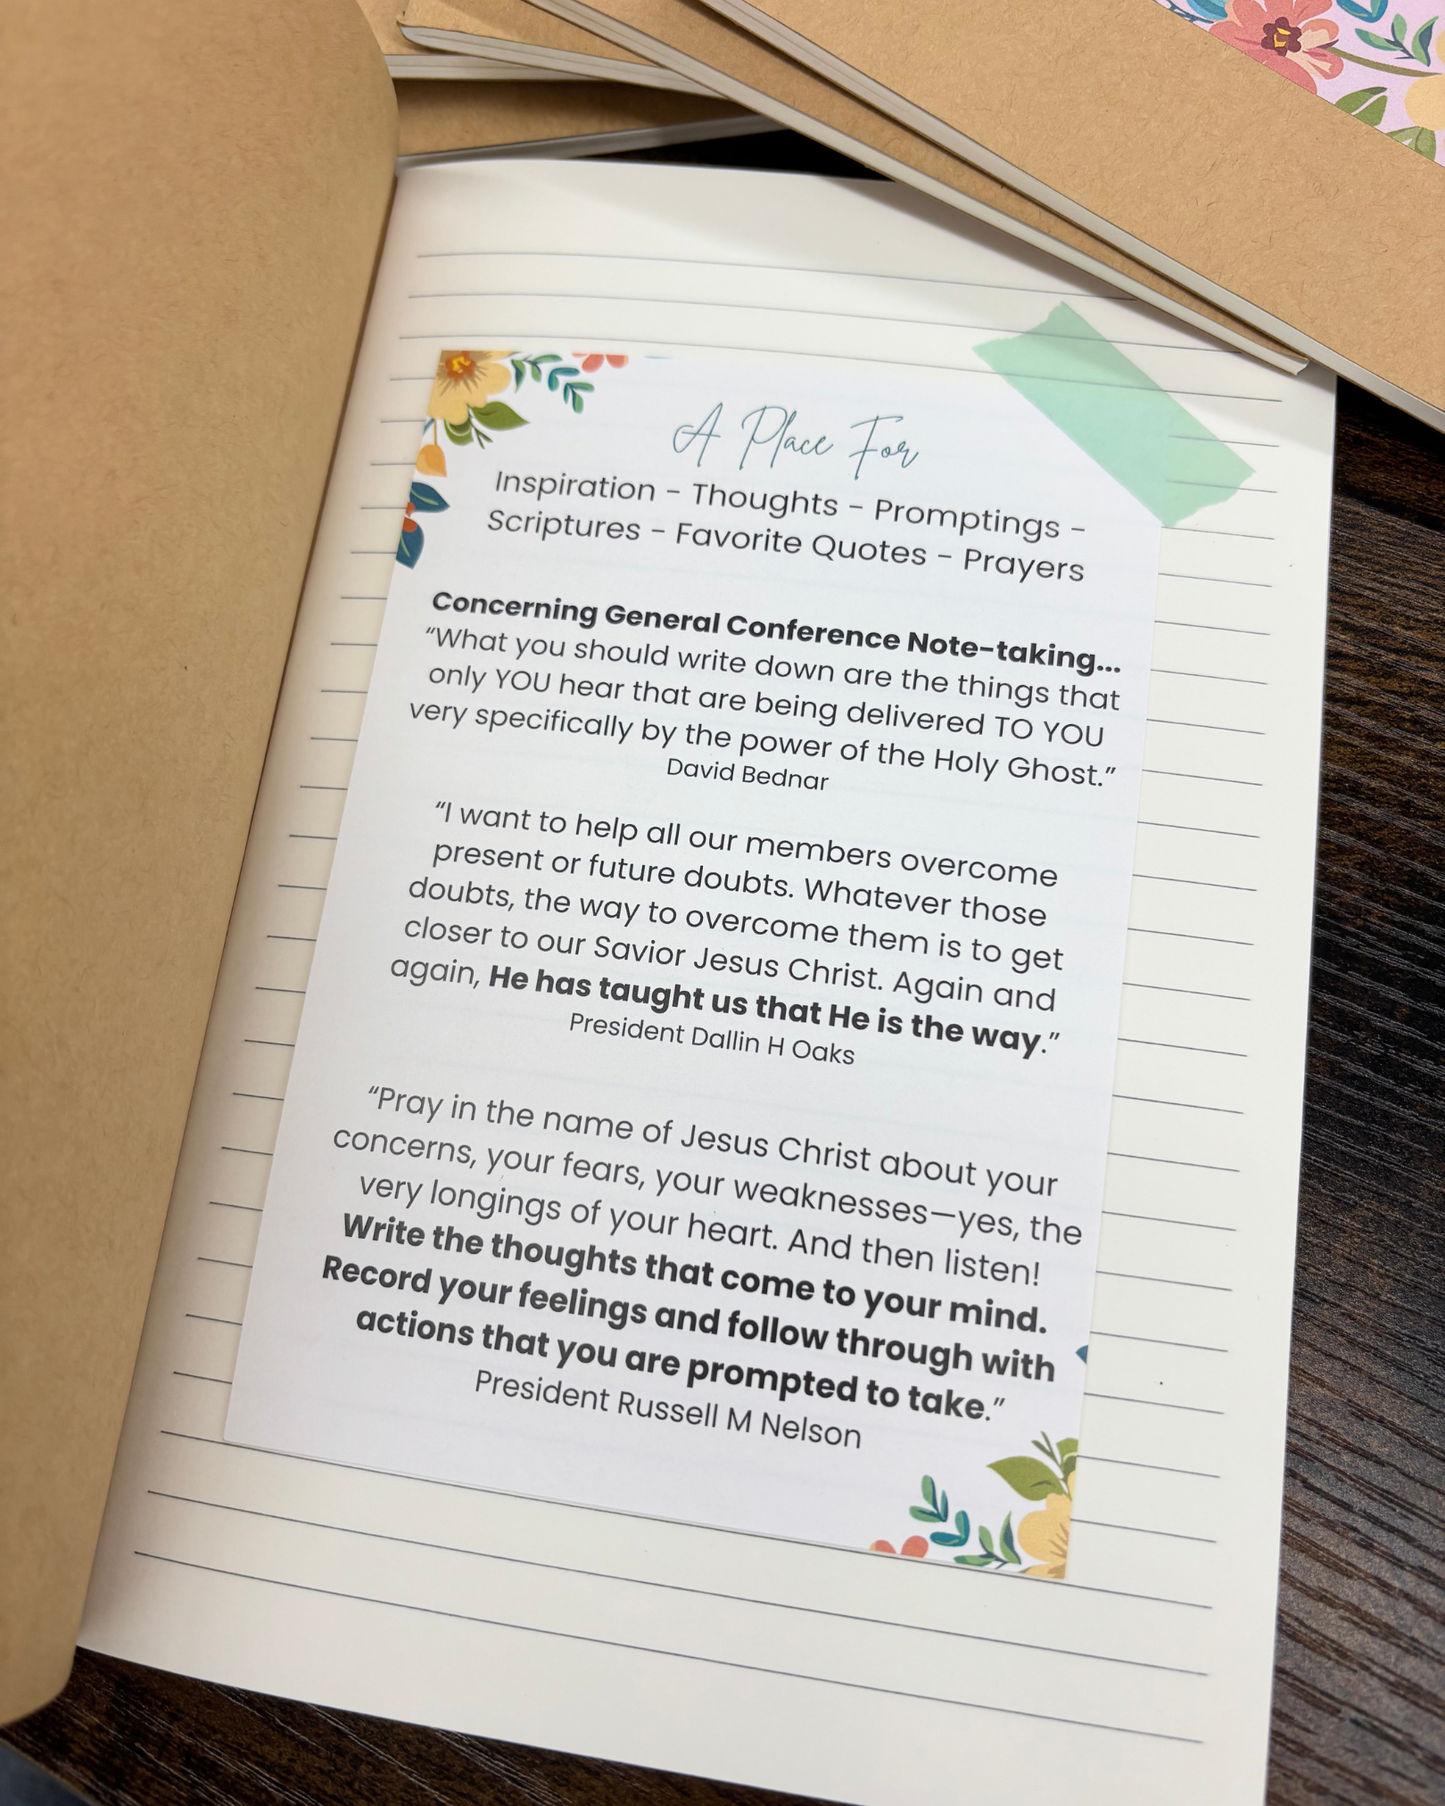 A Place For
Inspiration - Thoughts - Promptings -
Scriptures - Favorite Quotes - Prayers
Concerning General Conference Note-taking...
“What you should write down are the things that
only YOU hear that are being delivered TO YOU
very specifically by the power of the Holy Ghost.”
David Bednar
“I want to help all our members overcome
present or future doubts. Whatever those
doubts, the way to overcome them is to get
closer to our Savior Jesus Christ. Again and
again, He has taught us that He is the way.”
President Dallin H Oaks
“Pray in the name of Jesus Christ about your
concerns, your fears, your weaknesses—yes, the
very longings of your heart. And then listen!
Write the thoughts that come to your mind.
Record your feelings and follow through with
actions that you are prompted to take.”
President Russell M Nelson